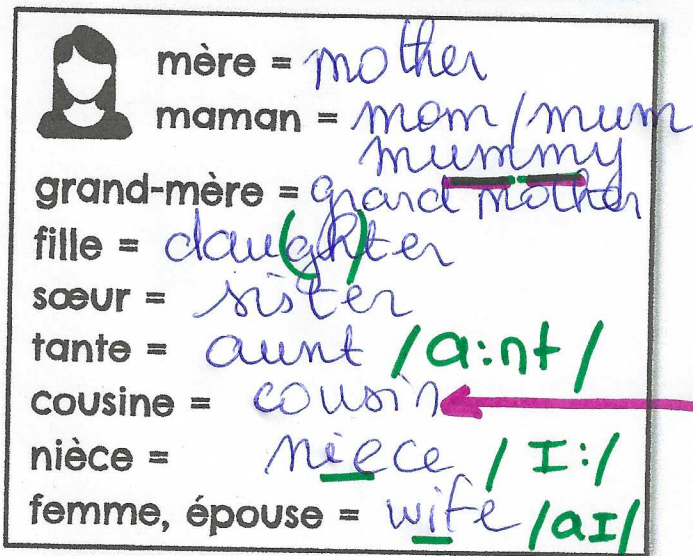 mère = mother
maman = mom / mum
mummy
grand-mère = grand mother
fille = dau(gh)ter
sœur = sister
tante = aunt /a:nt/
cousine = cousin
nièce = niece /I:/
femme, épouse = wife /aI/